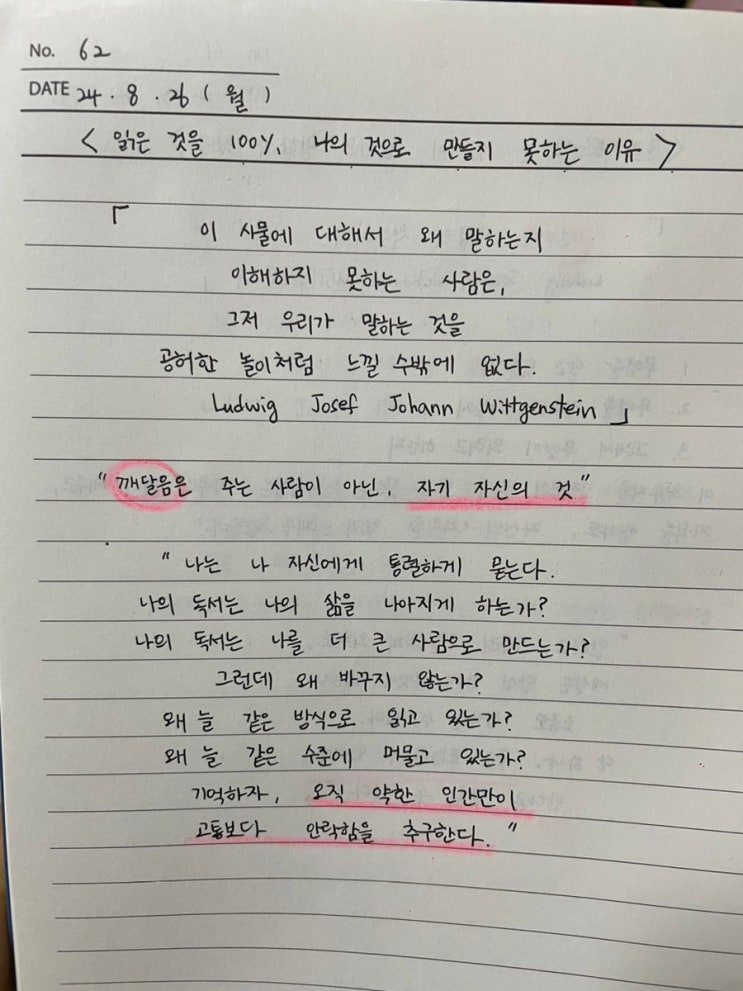 No. 62
DATE 24. 8. 26 (월)
< 읽은 것을 100%, 나의 것으로 만들지 못하는 이유 >
「 이 사물에 대해서 왜 말하는지
이해하지 못하는 사람은,
그저 우리가 말하는 것을
공허한 놀이처럼 느낄 수밖에 없다.
Ludwig Josef Johann Wittgenstein 」
"깨달음은 주는 사람이 아닌, 자기 자신의 것"
" 나는 나 자신에게 통렬하게 묻는다.
나의 독서는 나의 삶을 나아지게 하는가?
나의 독서는 나를 더 큰 사람으로 만드는가?
그런데 왜 바꾸지 않는가?
왜 늘 같은 방식으로 읽고 있는가?
왜 늘 같은 수준에 머물고 있는가?
기억하자, 오직 약한 인간만이
고통보다 안락함을 추구한다. "